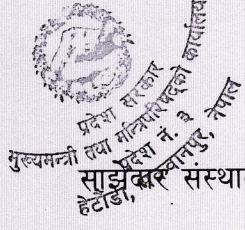 प्रदेश सरकार
मुख्यमन्त्री तथा मन्त्रिपरिषद्को कार्यालय
प्रदेश नं. ३
हेटौंडा, मकवानपुर, नेपाल
साझेदार संस्था